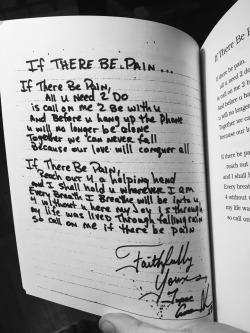 IF THERE BE PAIN...
If There Be Pain,
All u Need 2 Do
is call on me 2 Be with u
And Before u hang up the Phone
u will no longer be alone
Together we can Never fall
Because our love will conquer all
If There Be Pain,
Reach out 4 a helping hand
and I shall hold u wherever I am
Every Breath I Breathe will be into u
4 without u here my Joy is through
my life was lived Through falling rain
so call on me if there be pain
Faithfully
Yours
If There Be Pa
If there be pain,
all u need 2 do
is call on me 2
And before u
u will no longer
Together we can
because our lov
If there be pai
reach out 4
and I shall h
Every breat
4 without u
my life was
so call on